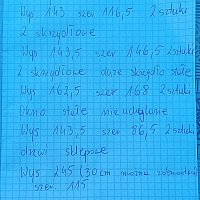 Wys 143 szer 116,5 2 sztuki
2 skrzydłowe
Wys 143,5 szer 146,5 2 sztuki
2 skrzydłowe duże skrzydło stałe
Wys 162,5 szer 168 2 sztuki
Okno stałe nie uchylane
Wys 143,5 szer 86,5 2 sztuki
drzwi sklepowe
Wys 245 (30 cm można
szer. 115